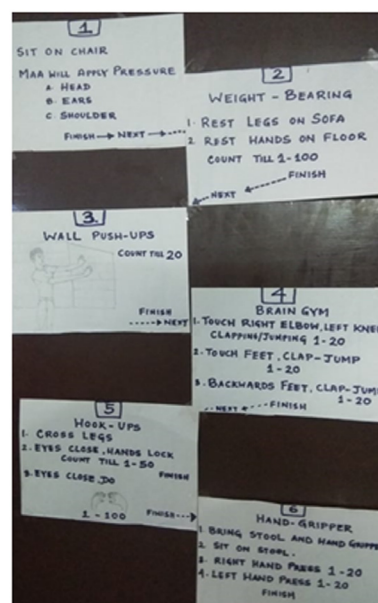 1
SIT ON CHAIR
MAA WILL APPLY PRESSURE
A. HEAD
B. EARS
C. SHOULDER
FINISH → NEXT →
2
WEIGHT - BEARING
1. REST LEGS ON SOFA
2. REST HANDS ON FLOOR
COUNT TILL 1-100
FINISH
NEXT
3.
WALL PUSH-UPS
COUNT TILL 20
FINISH
NEXT
4
BRAIN GYM
1. TOUCH RIGHT ELBOW, LEFT KNEE
CLAPPING/JUMPING 1-20
2. TOUCH FEET, CLAP-JUMP
1-20
3. BACKWARDS FEET, CLAP-JUMP
1-20
NEXT ← FINISH
5
HOOK-UPS
1. CROSS LEGS
2. EYES CLOSE, HANDS LOCK
COUNT TILL 1-50
FINISH
3. EYES CLOSE, DO
1-100
FINISH
6
HAND-GRIPPER
1. BRING STOOL AND HAND GRIPPE
2. SIT ON STOOL.
3. RIGHT HAND PRESS 1-20
4. LEFT HAND PRESS 1-20
FINISH